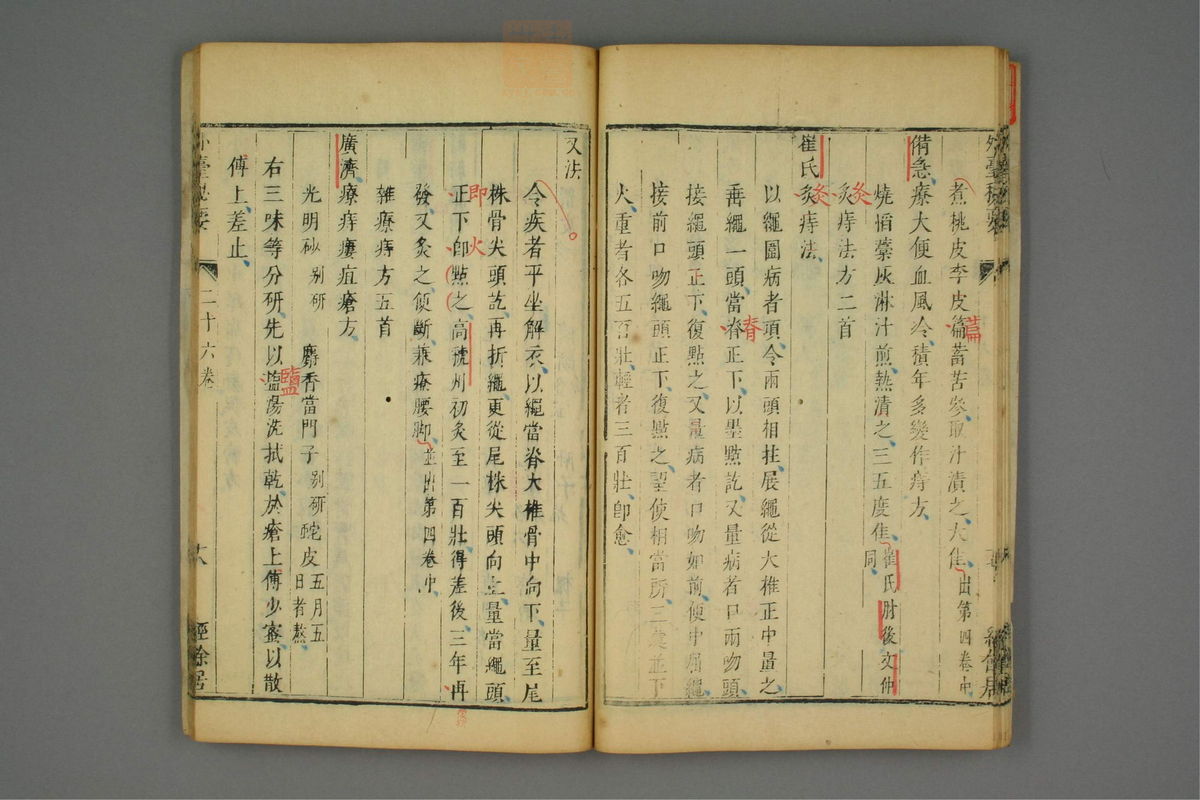 煮桃皮李皮篇蓄苦參取汁漬之大佳出第四卷中
備急療大便血風冷積年多變作痔方
燒稻藁灰淋汁煎熱漬之三五度佳崔氏肘後文仲同
灸痔法方二首
崔氏灸痔法
以繩圍病者項令兩頭相拄展繩從大椎正中量之
垂繩一頭當脊正下以墨點訖又量病者口兩吻頭
接繩頭正下復點之又量病者口吻如前便中屈繩
接前口吻繩頭正下復點之望使相當所三處並下
火重者各五百壯輕者三百壯卽愈
又法
令疾者平坐解衣以繩當脊大椎骨中向下量至尾
株骨尖頭訖再折繩更從尾株尖頭向上量當繩頭
正下卽點之高虢州初灸至一百壯得差後三年再
發又灸之便斷兼療腰脚並出第四卷中
雜療痔方五首
廣濟療痔瘻疽瘡方
光明砂別研 麝香當門子別研 蛇皮五月五日者熬
右三味等分研先以鹽湯洗拭乾於瘡上傅少蜜以散
傅上差止
二十六卷
經餘居
脊
灸
灸
卽
火
鹽